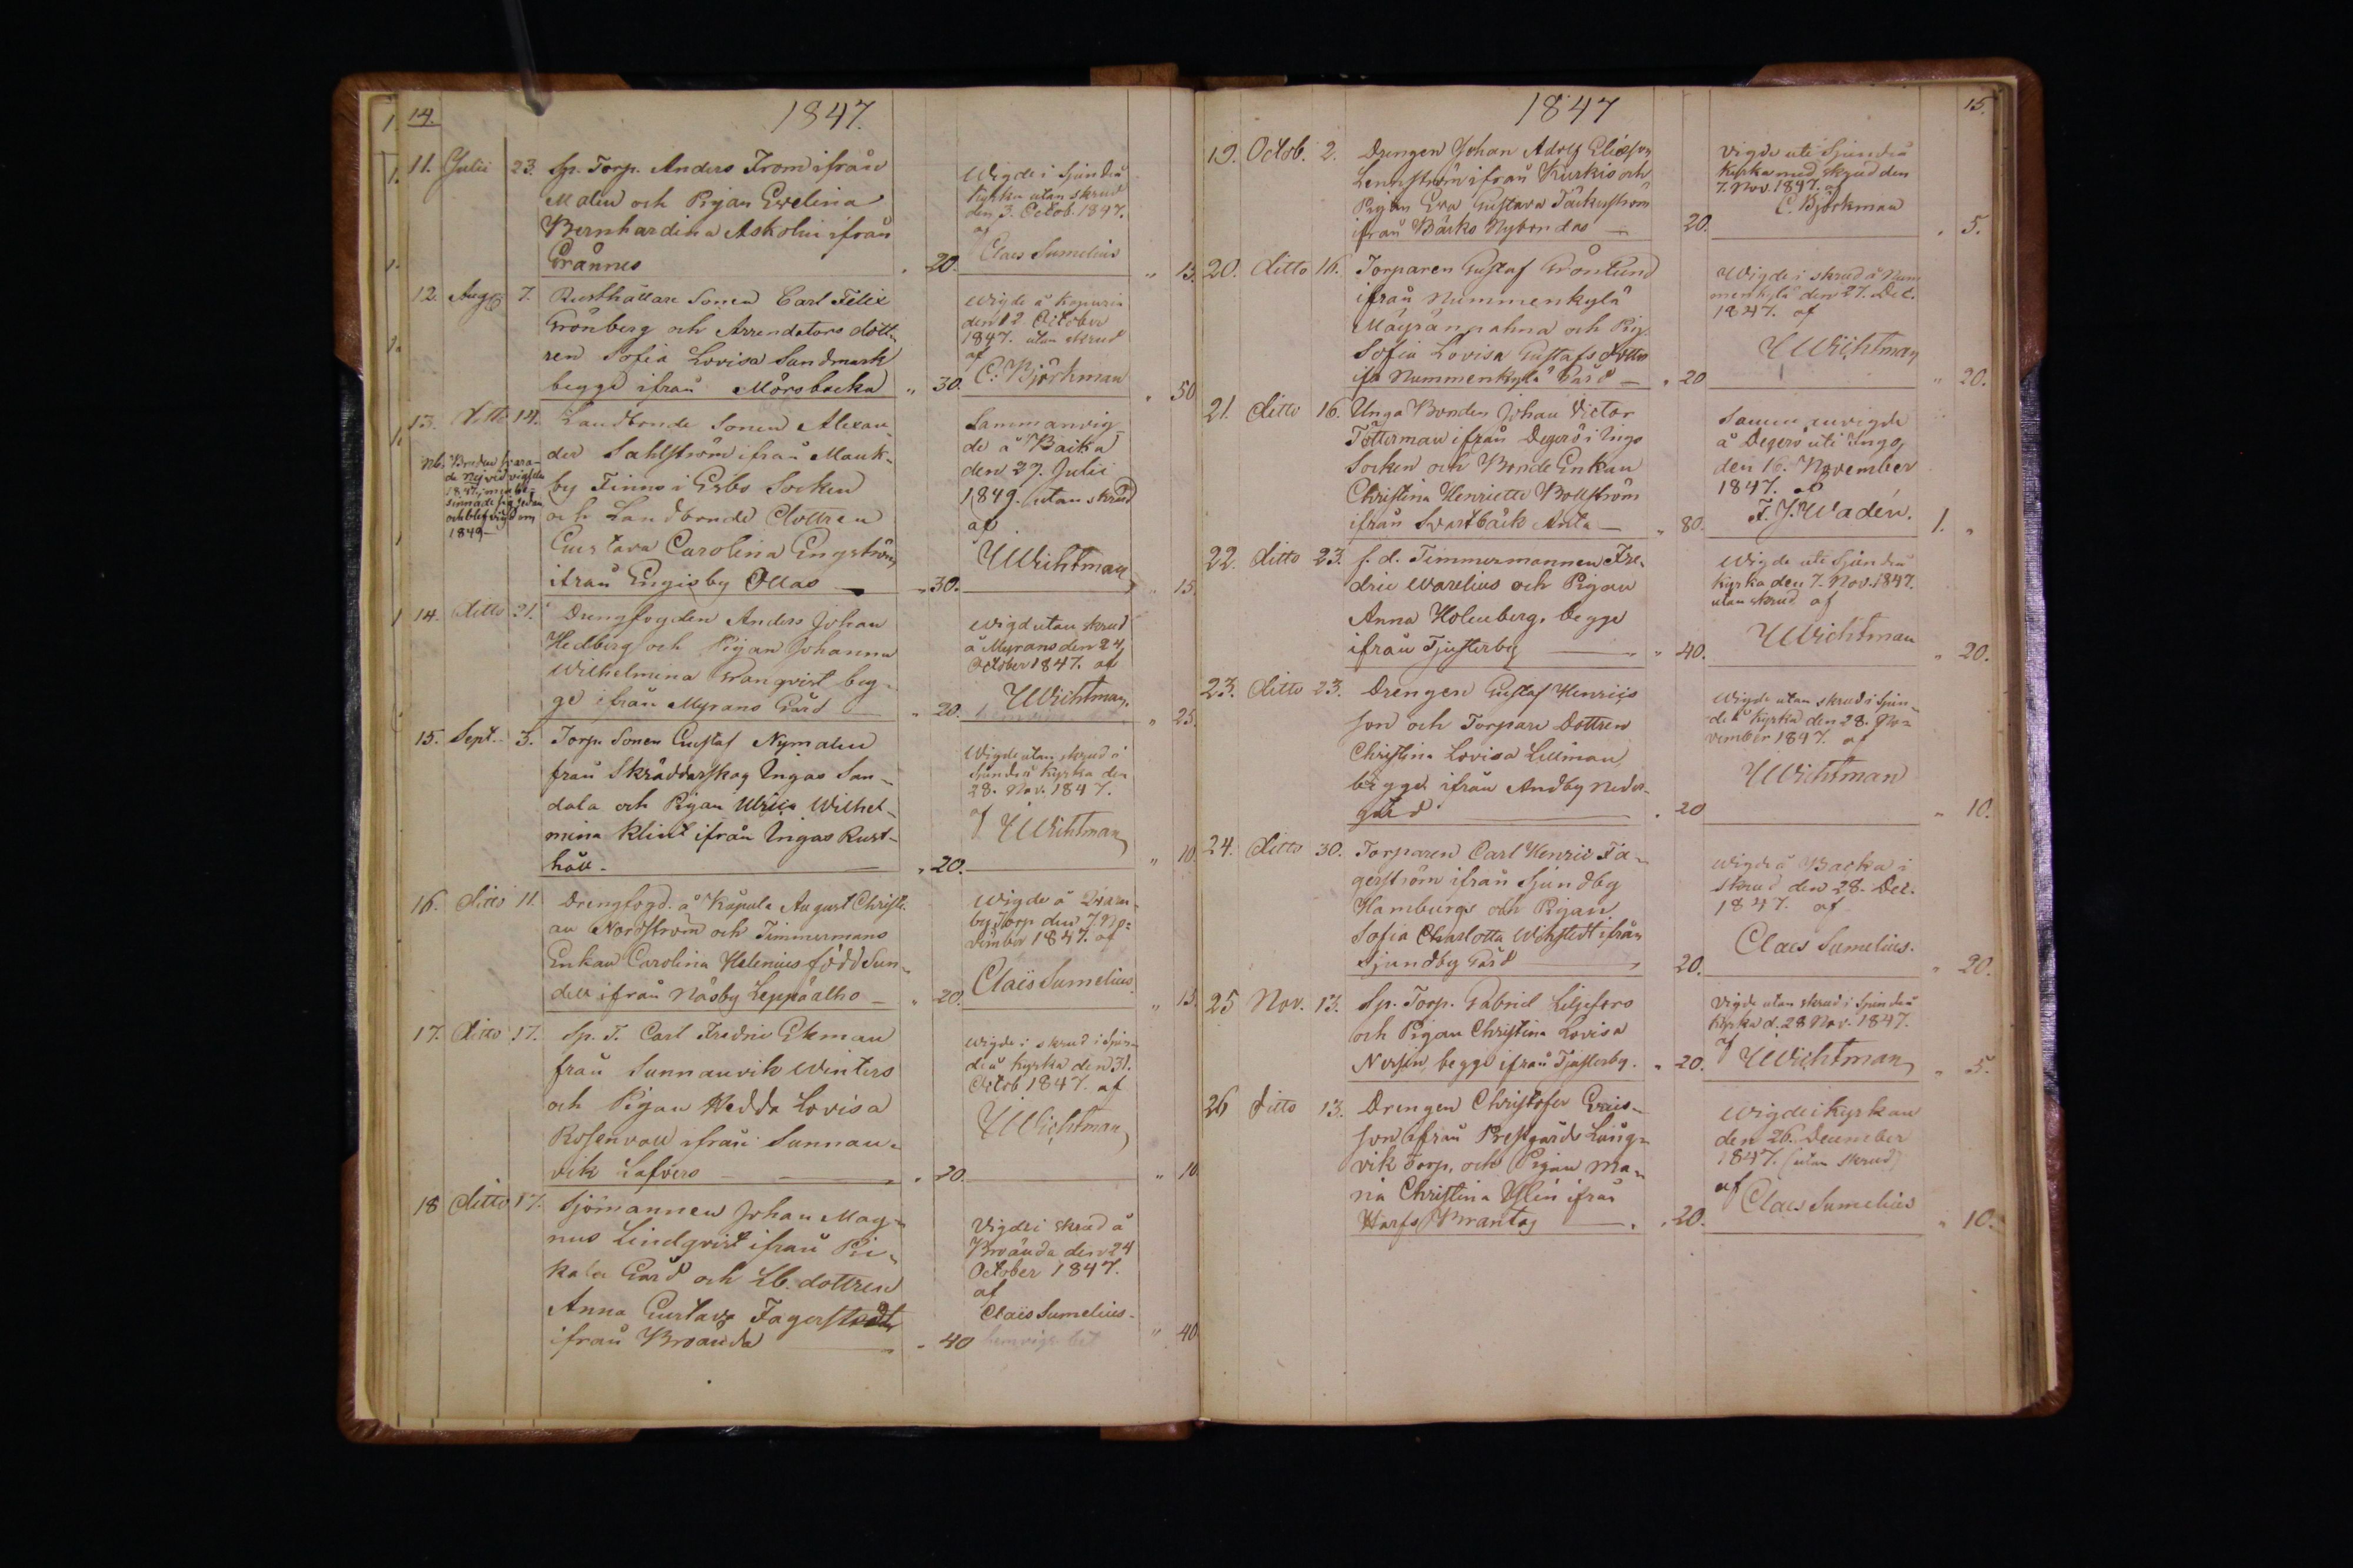 14.
1847.
11. Julii 23. Sp. Torp. Anders From ifrån
Malin och Pigan Evelina
Bernhardina Askolin ifrån
Grännes " 20.
Wigde i Sjundeå
Kyrka utan skrud
den 3. Octob. 1847.
af
Claes Sumelius " 15
12. Aug. 7. Rusthållare Sonen Carl Felix
Grönberg och Arrendators dött-
ren Sofia Lovisa Sandmark
begge ifrån Mörsbacka " 30.
Wigde å Kopuria
den 12 October
1847. utan skrud
af
C. Björkman " 50
13. ditto 14. Landbonde Sonen Alexan-
der Sahlström ifrån Mank-
by Finns i Esbo Socken
och Landbonde Dottren
Gustava Carolina Engström
ifrån Engisby Ollas " 30.
Nb. Bruden svara-
de Nej vid vigseln
1847, men be-
sinnade sig sedan
och blef vigd om
1849
Sammanvig-
de å Backa
den 29. Julii
1849. utan skrud
af
Wichtman " 15
14. ditto 21. Drengfogden Anders Johan
Hedberg och Pigan Johanna
Wilhelmina Granqvist beg-
ge ifrån Myrans Gård " 20.
Wigd utan skrud
å Myrans den 24
October 1847. af
Wichtman. " 25.
15. Sept. 3. Torp. Sonen Gustaf Nymalin
från Skräddarskog Ingas San-
dala och Pigan Ulrica Wilhel-
mina Klint ifrån Ingas Rust-
håll. " 20.
Wigde utan skrud i
Sjundeå Kyrka den
28. Nov. 1847.
af Wichtman " 10
16. ditto 11. Drengfogd. å Kåpula August Christi-
an Nordström och Timmermans
Enkan Carolina Helenius född Sun-
dell ifrån Näsby Leppäalho " 20.
Wigde å
by Torp den 7. No-
vember 1847. af
Claës Sumelius. " 15.
17. ditto 17. Sp. T. Carl Fredric Ekman
från Sunnanvik Winters
och Pigan Hedda Lovisa
Rosenvall ifrån Sunnan-
vik Lafvers " 20.
Wigde i skrud i Sjun-
deå Kyrka den 31.
Octob. 1847. af
Wichtman " 10
18 ditto 17. Sjömannen Johan Mag-
nus Lindqvist ifrån Pic-
kala Gård och Lb. dottren
Anna Gustava Fagerstedt
ifrån Broända " 40
Vigde i skrud å
Broända den 24
October 1847.
af
Claës Sumelius. " 40
15.
1847
19. Octob. 2. Drengen Johan Adolf Eliæson
Lennström ifrån Kurkis och
Pigan Eva Gustava Täckuström
ifrån Bäcks Nybondas 20.
Vigde uti Sjundeå
Kyrka med skrud den
7. Nov. 1847. af
C. Björkman " 5.
20. ditto 16. Torparen Gustaf Grönlund
ifrån Nummenkylä
Mäyränpahna och Pig.
Sofia Lovisa Gustafs dotter
ifr. Nummenkylä Gård " 20
Wigde i skrud å Num
menkylä den 27. Dec.
1847. af
Wichtman " 20.
21. ditto 16. Unga Bonden Johan Victor
Tötterman ifrån Degerö i Ingo
Socken och Bonde Enkan
Christina Henriette Bollström
ifrån Svartbäck Anta " 80.
Sammanvigde
å Degerö uti Ingo,
den 16. November
1847. af
F. J. Wadén. 1. "
22. ditto 23. f. d. Timmermannen Fre-
dric Warelius och Pigan
Anna Holmberg, begge
ifrån Tjusterby " 40.
Wigde uti Sjundeå
Kyrka den 7. Nov. 1847.
utan skrud af
Wichtman " 20.
23. ditto 23. Drengen Gustaf Henrics
son och Torpare Dottren
Christina Lovisa Lillman,
begge ifrån Andby Neder-
gård " 20
Wigde utan skrud i Sjun-
deå Kyrka den 28. No-
vember 1847. af
Wichtman " 10.
24. ditto 30. Torparen Carl Henric Fa-
gerström ifrån Sjundby
Hamburgs och Pigan
Sofia Charlotta Wikstedt ifrån
Sjundby Gård 20.
Wigde å Backa i
skrud den 28. Dec.
1847. af
Claes Sumelius. " 20.
25 Nov. 13. Sp. Torp. Gabriel Liljefors
och Pigan Christina Lovisa
Norlin, begge ifrån Tjusterby. " 20.
Vigde utan skrud i Sjundeå
Kyrka d. 28 Nov. 1847.
af Wichtman " 5.
26 ditto 13. Drengen Christofer Grais-
son ifrån Prestgårds Lång-
vik Torp, och Pigan Ma-
ria Christina Uhlin ifrån
Harfs Brantas " 20.
Wigde i Kyrkan
den 26. December
1847. (utan skrud)
af
Claes Sumelius " 10.